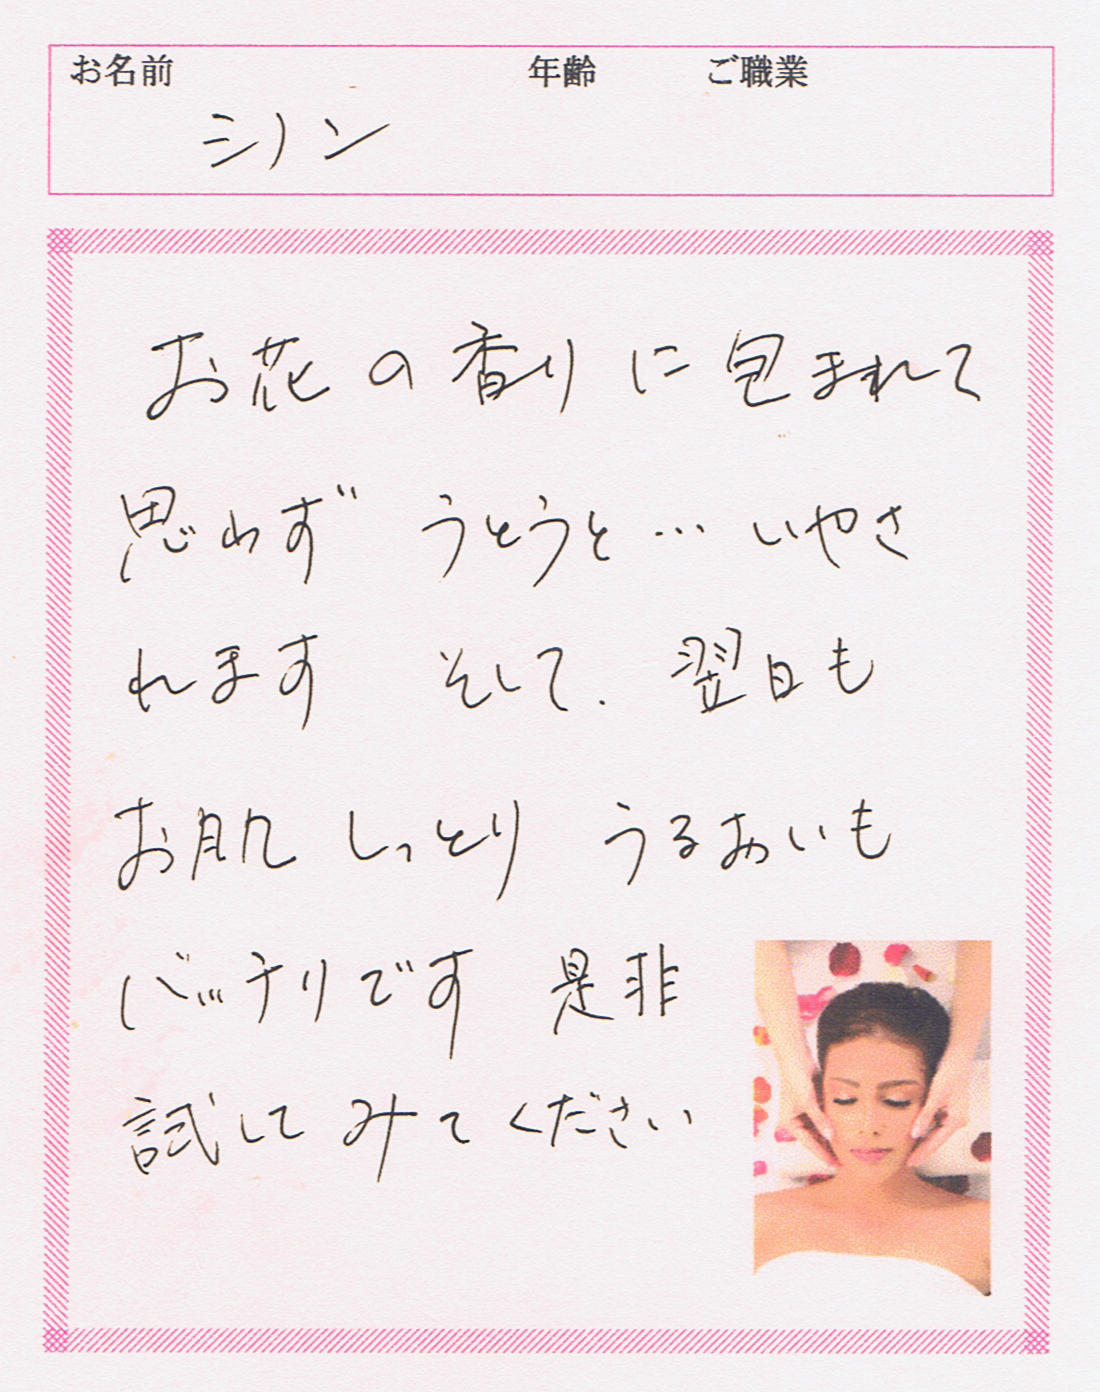 お名前 年齢 ご職業
シノン
お花の香りに包まれて
思わず うとうと… いやさ
れます そして、翌日も
お肌 しっとり うるおいも
バッチリです 是非
試してみてください